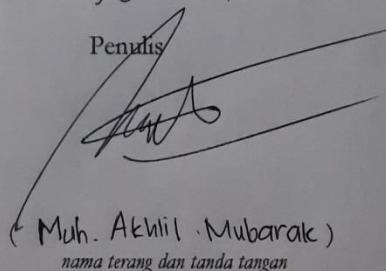 Penulis
(Muh. Akhlil. Mubarak)
nama terang dan tanda tangan